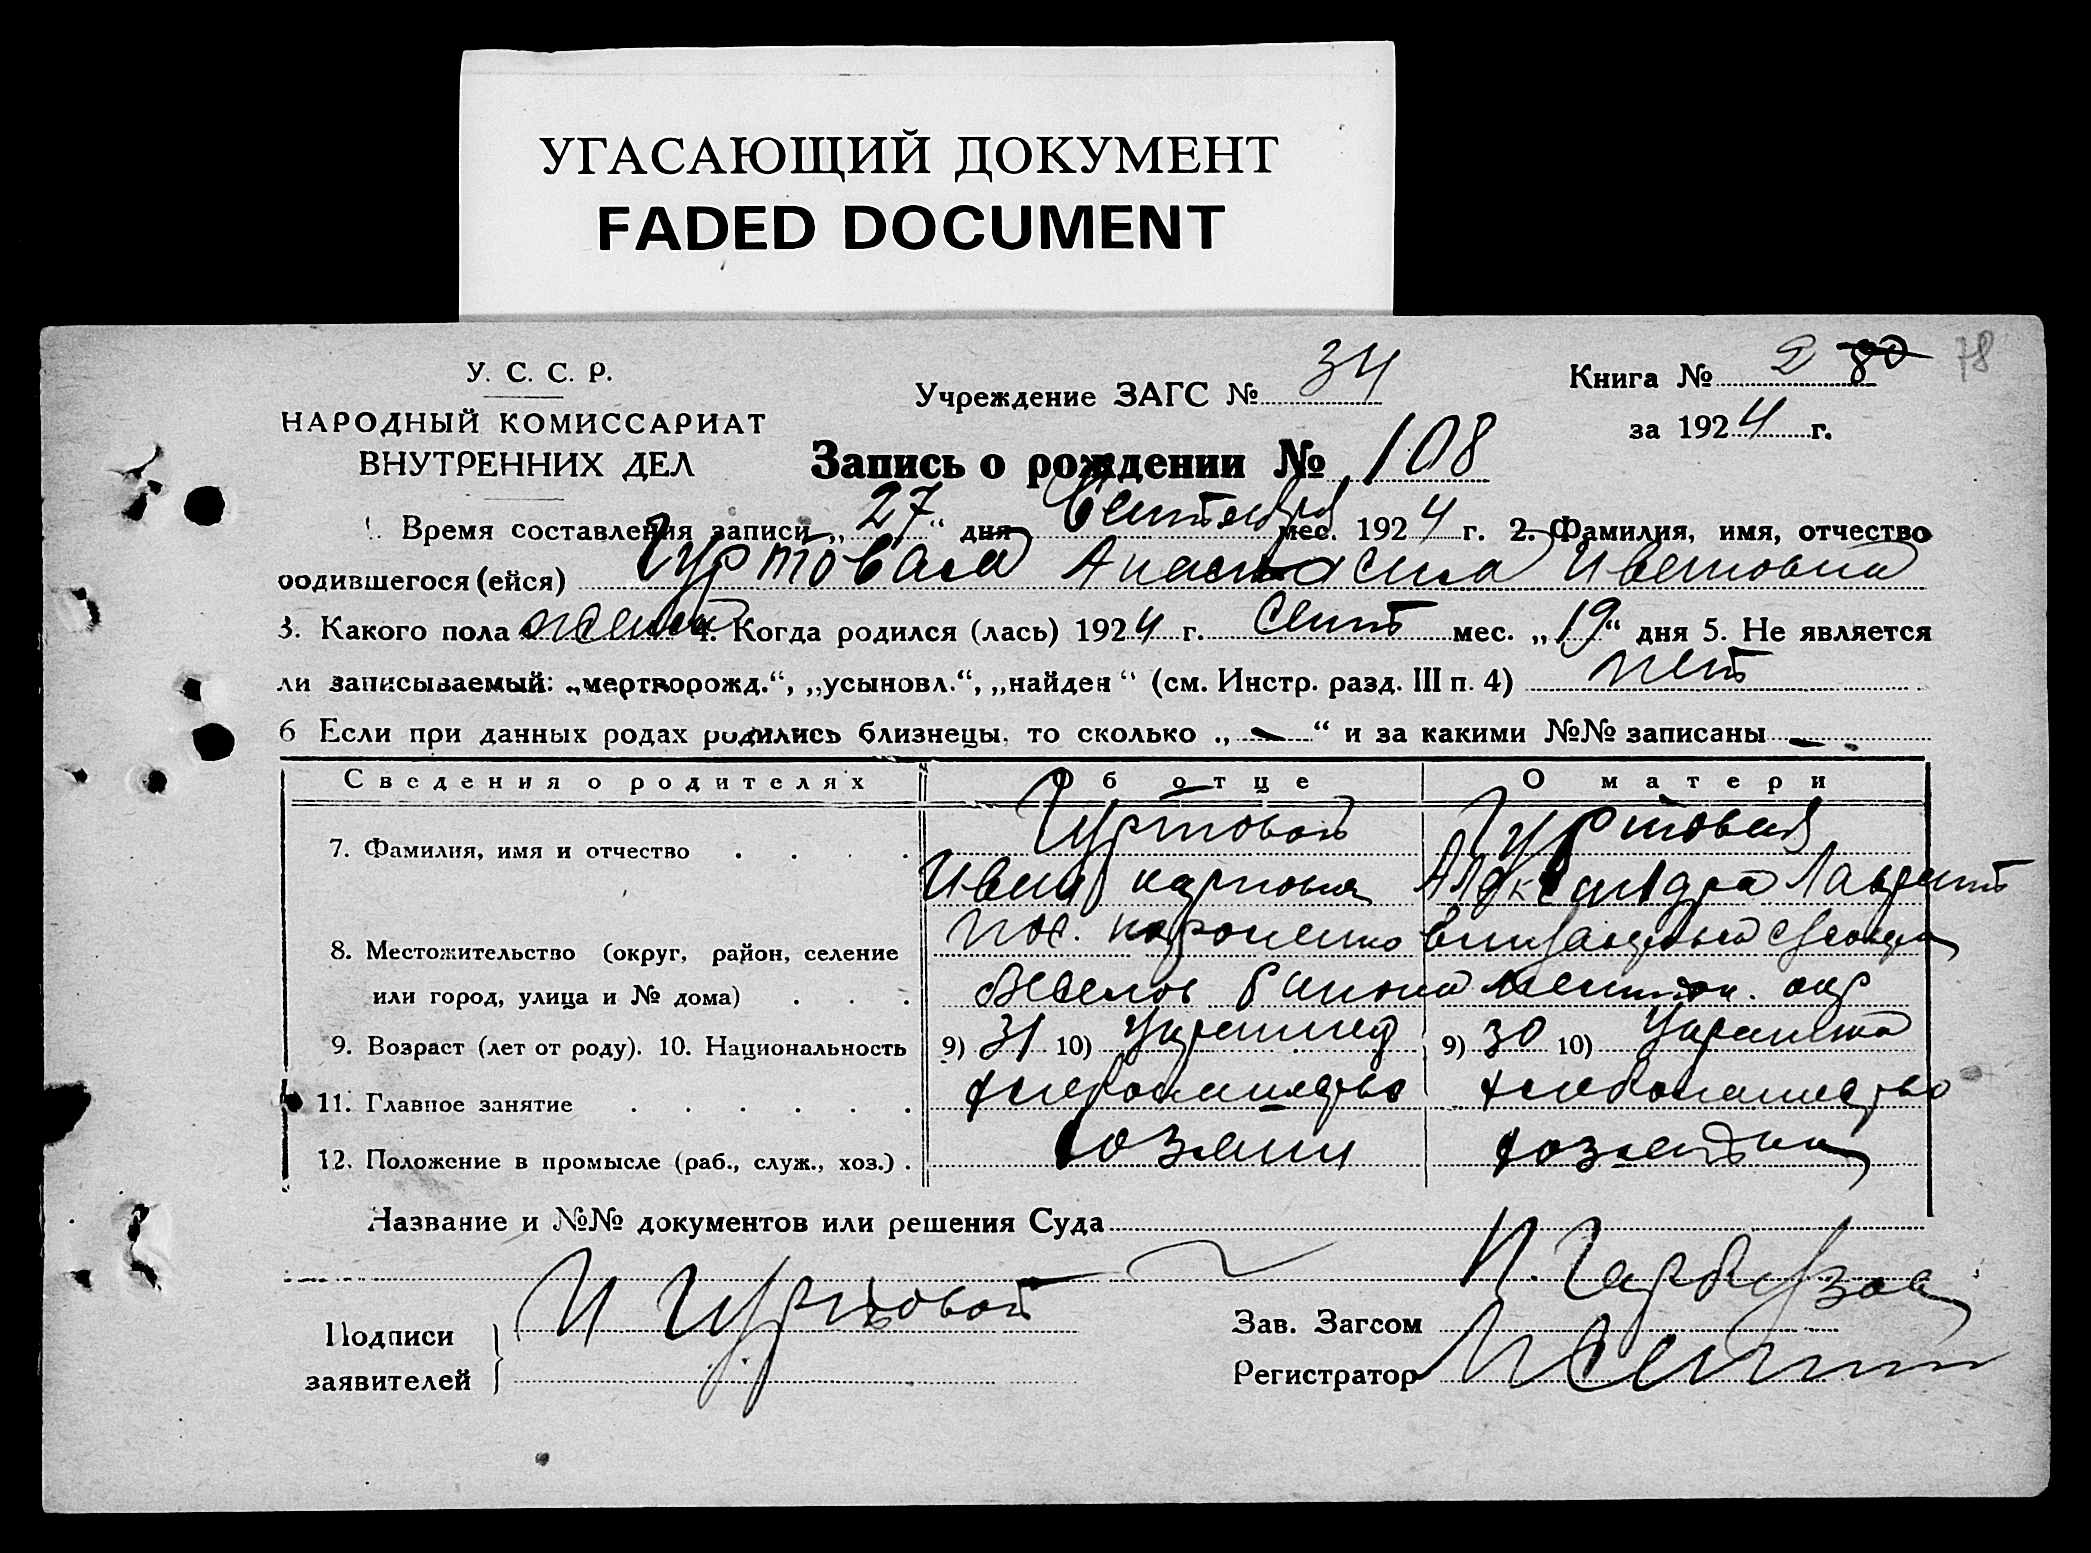 УГАСАЮЩИЙ ДОКУМЕНТ
FADED DOCUMENT
У. С. С. Р.
НАРОДНЫЙ КОМИССАРИАТ
ВНУТРЕННИХ ДЕЛ
Учреждение ЗАГС № 34
Книга № 2 80 78
за 1924 г.
Запись о рождении № 108
1. Время составления записи „27“ дня Сентября мес. 1924 г. 2. Фамилия, имя, отчество
родившегося (ейся) Гуртовая Анастасия Ивановна
3. Какого пола женск 4. Когда родился (лась) 1924 г. Сент мес. „19“ дня 5. Не является
ли записываемый: „мертворожд.“, „усыновл.“, „найден“ (см. Инстр. разд. III п. 4) нет
6 Если при данных родах родились близнецы, то сколько „—“ и за какими №№ записаны —
Сведения о родителях Об отце О матери
7. Фамилия, имя и отчество Гуртовой Гуртовая
Иван Александра Лаврент
8. Местожительство (округ, район, селение пос.
или город, улица и № дома) окр
9. Возраст (лет от роду). 10. Национальность 9) 31 10) Украинец 9) 30 10) Украинка
11. Главное занятие хлебопашество хлебопашество
12. Положение в промысле (раб., служ., хоз.) хозяин хозяйка
Название и №№ документов или решения Суда
Подписи И Гуртовой
заявителей
Зав. Загсом
Регистратор